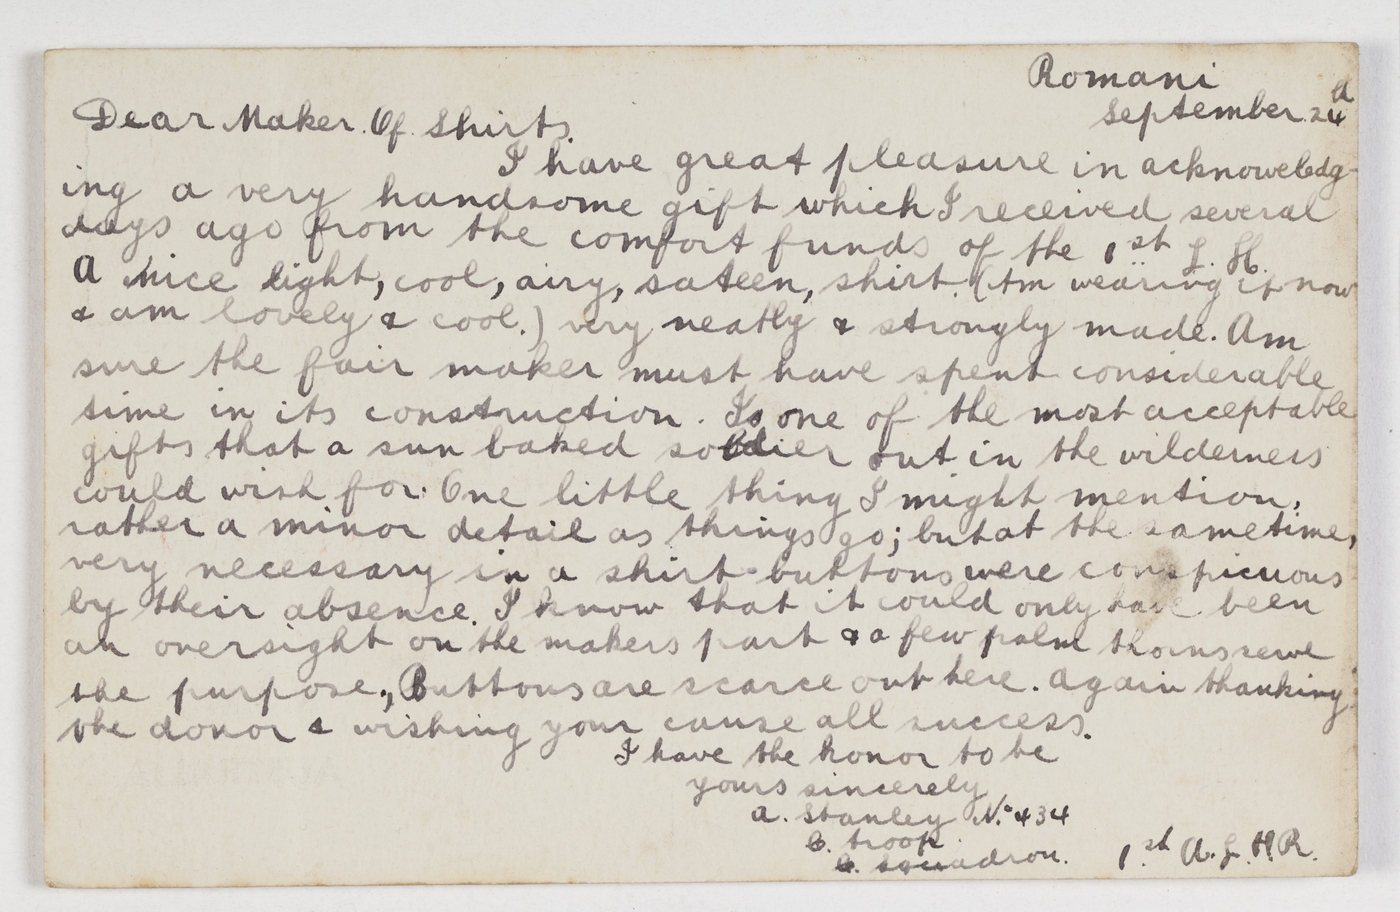 Romani
September. 24
Dear Maker. Of. Shirts.
I have great pleasure in acknoweledg-
ing a very handsome gift which I received several
days ago from the comfort funds of the 1st L. H.
A nice light, cool, airy, sateen, shirt. (Am wearing it now
& am lovely & cool.) very neatly & strongly made. Am
sure the fair maker must have spent considerable
time in its construction. Is one of the most acceptable
gifts that a sun baked soldier out in the wilderness
could wish for. One little thing I might mention,
rather a minor detail as things go; but at the sametime,
very necessary in a shirt - buttons were conspicuous
by their absence. I know that it could only have been
an oversight on the makers part & a few palm thorns serve
the purpose., Buttons are scarce out here. Again thanking
the donor & wishing your cause all success.
I have the honor to be
yours sincerely
A. Stanley No. 434
troop
squadron. 1st A. L. H. R.